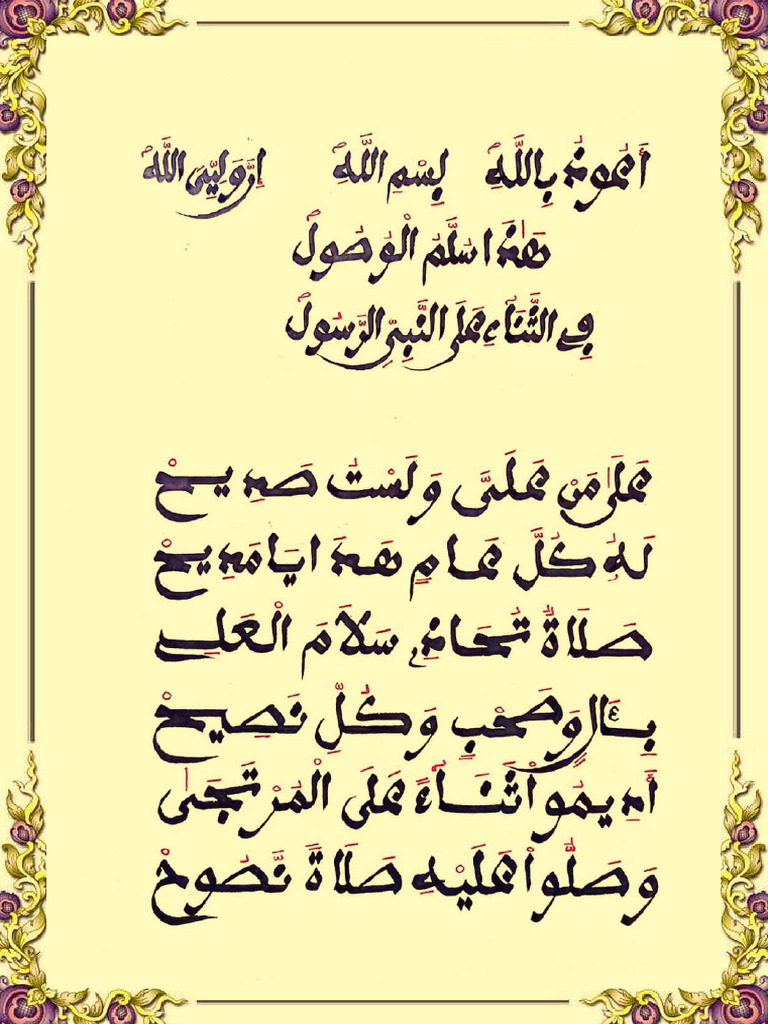 أَعُوذُ بِاللَّهِ بِسْمِ اللَّهِ إِنَّ وَلِيِّىَ اللَّهُ
هَٰذَا سُلَّمُ الْوُصُولْ
فِي الثَّنَاءِ عَلَى النَّبِيِّ الرَّسُولْ
عَلَىٰ مَنْ عَلَىَّ وَلَسْتُ صَدِيحْ
لَهُ كُلَّ عَامٍ هَذَا يَا مَدِيحْ
صَلَاةٌ تُحَاذِي سَلَامَ الْعَلِي
بِئَالٍ وَصَحْبٍ وَكُلِّ نَصِيحْ
أَدِيمُواْ ثَنَآءً عَلَى الْمُرْتَجَىٰ
وَصَلُّواْ عَلَيْهِ صَلَاةً نَّصُوحْ